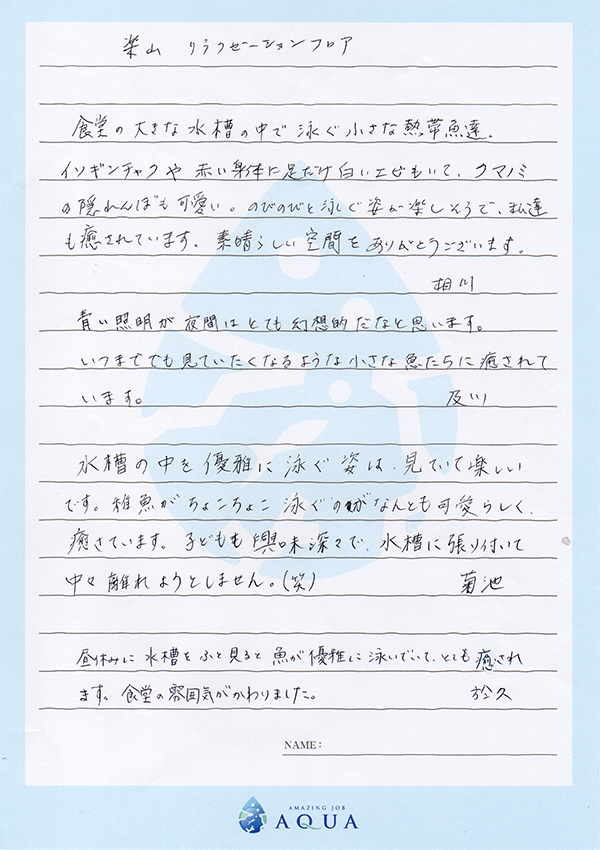 楽山 リラクゼーションフロア
食堂の大きな水槽の中で泳ぐ小さな熱帯魚達。
イソギンチャクや赤い身体に足だけ白いエビもいて、クマノミ
の隠れんぼも可愛い。のびのびと泳ぐ姿が楽しそうで、私達
も癒されています。素晴らしい空間をありがとうございます。
相川
青い照明が夜間はとても幻想的だなと思います。
いつまででも見ていたくなるような小さな魚たちに癒されて
います。 及川
水槽の中を優雅に泳ぐ姿は、見ていて楽しい
です。稚魚がちょこちょこ泳ぐのがなんとも可愛らしく、
癒さています。子どもも興味深々で、水槽に張り付いて
中々離れようとしません。(笑) 菊池
昼休みに水槽をふと見ると魚が優雅に泳いでいて、とても癒され
ます。食堂の雰囲気がかわりました。 於久
NAME:
AMAZING JOB
AQUA